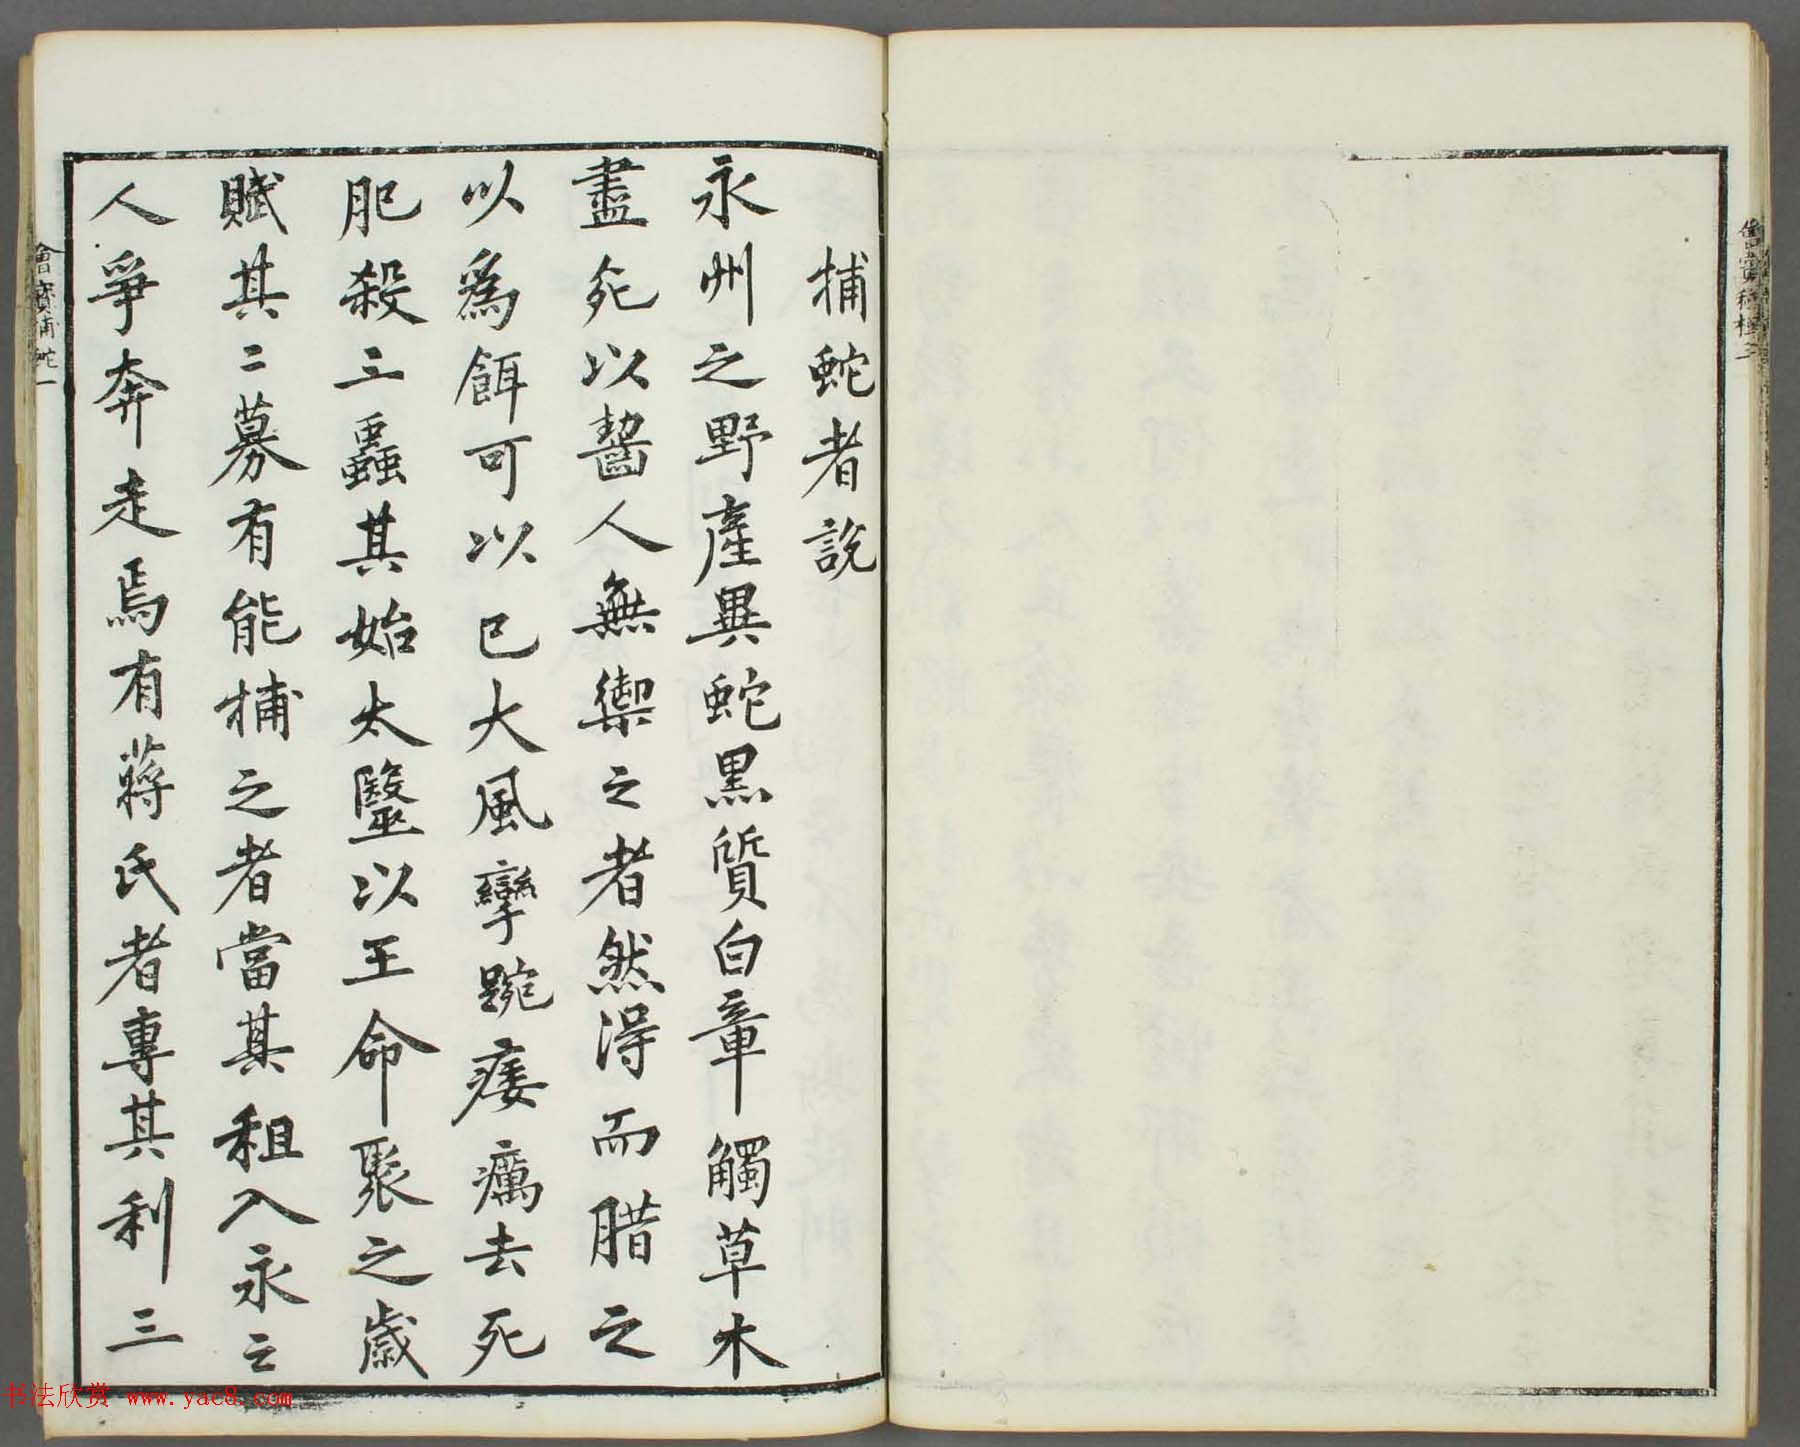 捕蛇者說
永州之野產異蛇黑質白章觸草木
盡死以齧人無禦之者然淂而腊之
以為餌可以已大風攣踠瘻癘去死
肥殺三蟲其始太毉以王命聚之歲
賦其二募有能捕之者當其租入永之
人爭奔走焉有蔣氏者專其利三
書法欣赏 www.yac8.com